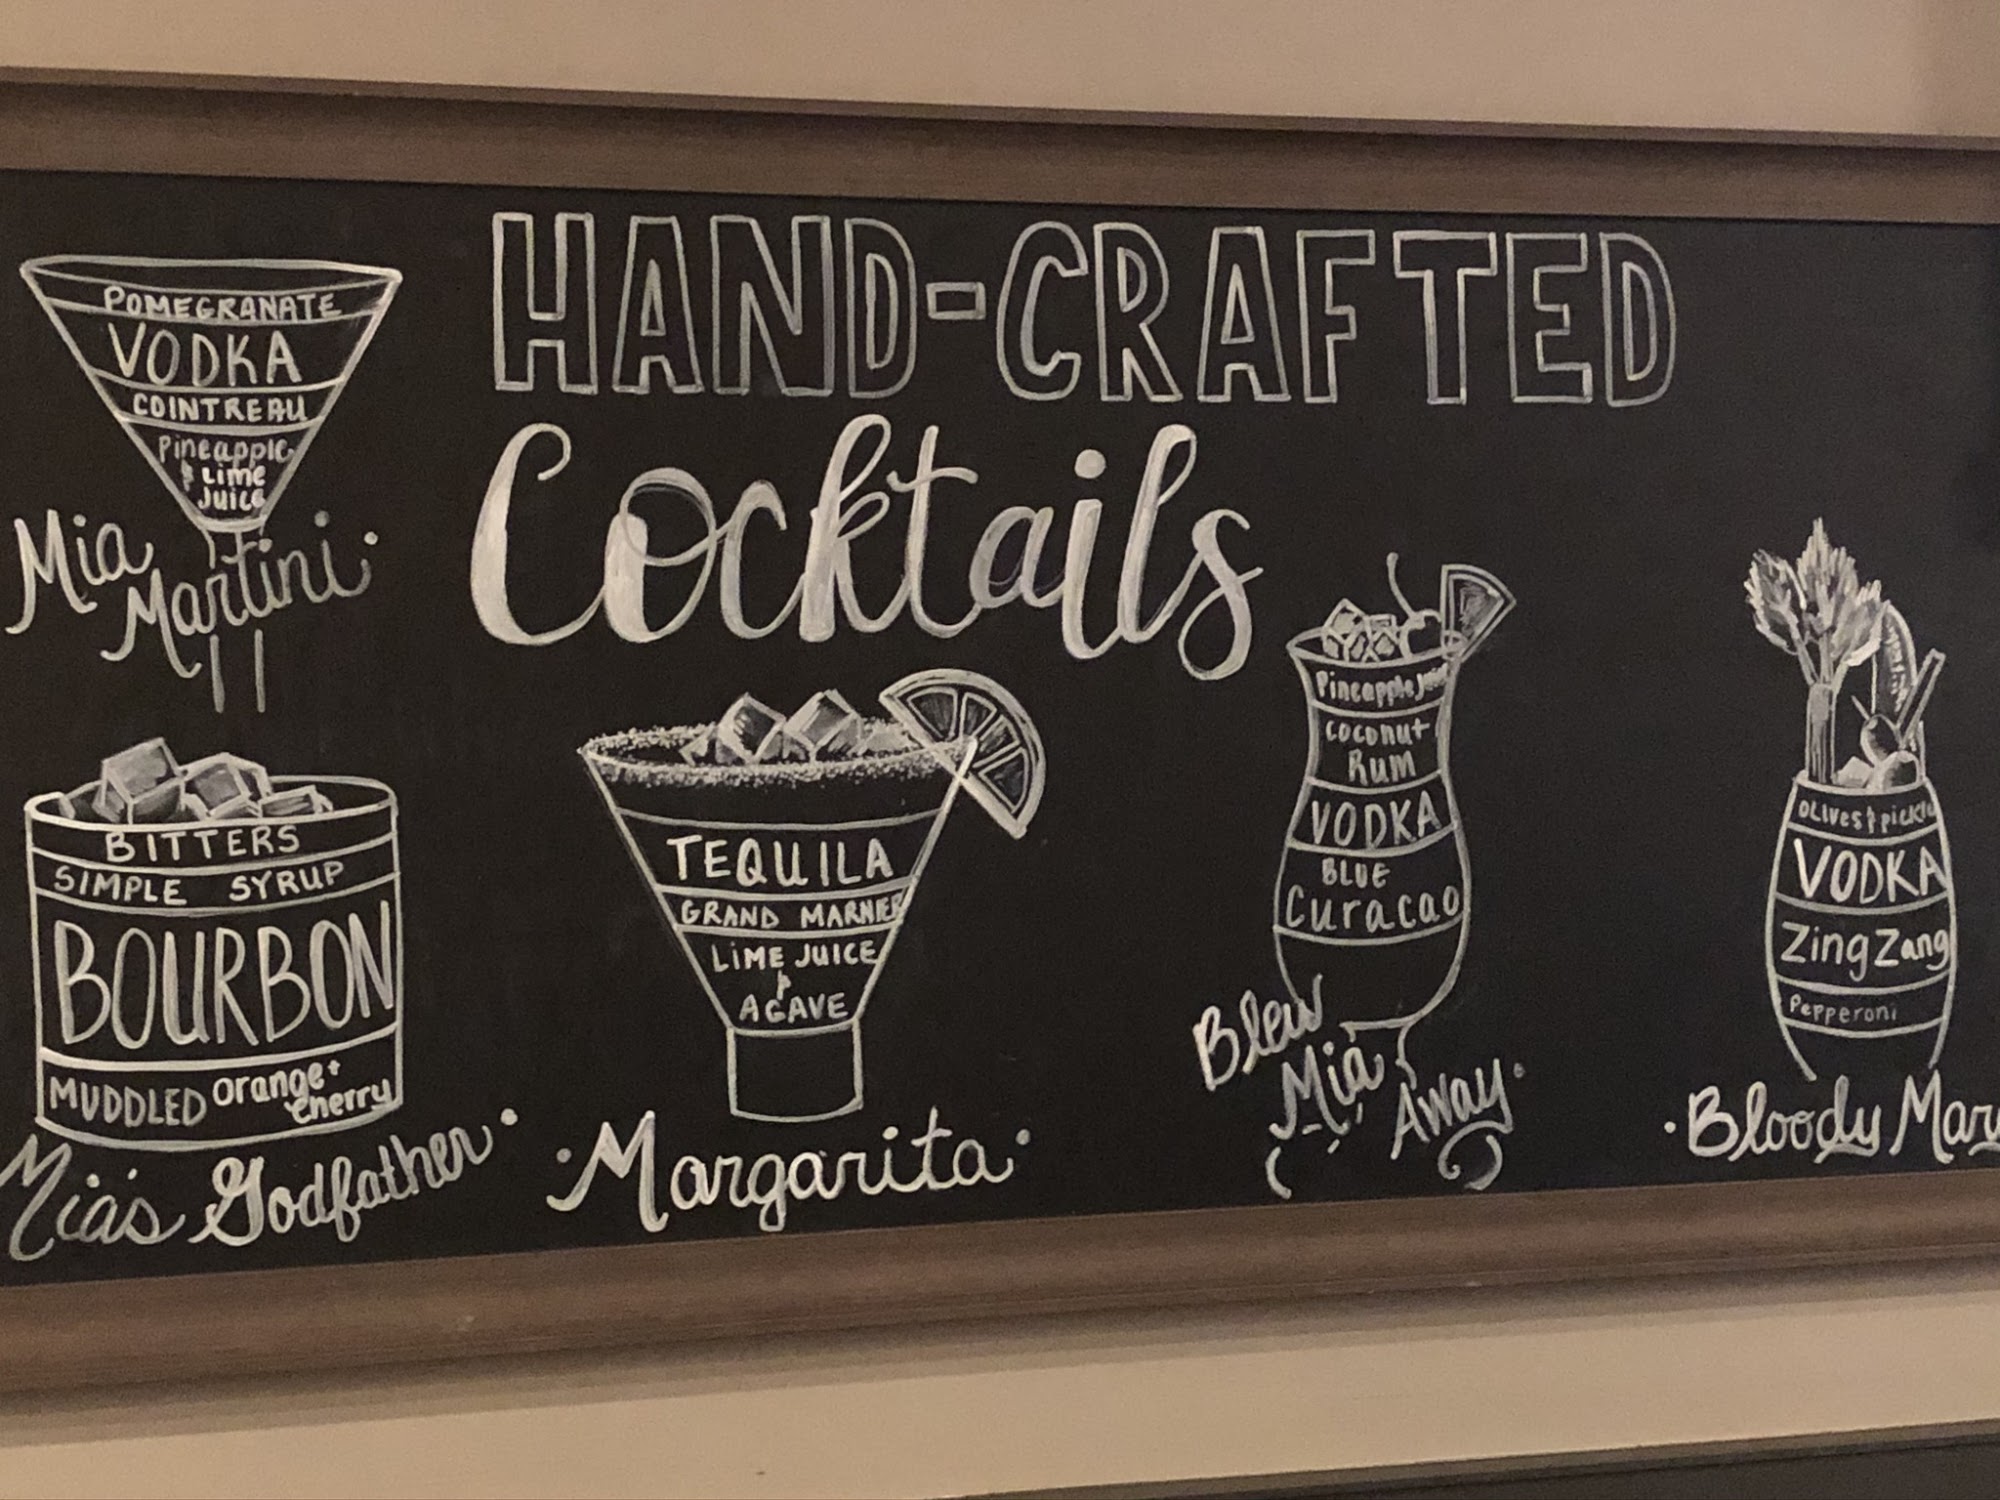 HAND-CRAFTED
Cocktails
POMEGRANATE
VODKA
COINTREAU
Pineapple
& Lime
Juice
Mia
Martini.
BITTERS
SIMPLE SYRUP
BOURBON
MUDDLED orange +
cherry
Mia's Godfather.
TEQUILA
GRAND MARNIER
LIME JUICE
&
AGAVE
.Margarita.
Pineapple Juice
Coconut
Rum
VODKA
BLUE
Curacao
Blew
Mia
Away.
OLIVES & pickle
VODKA
Zing Zang
Pepperoni
.Bloody Mary